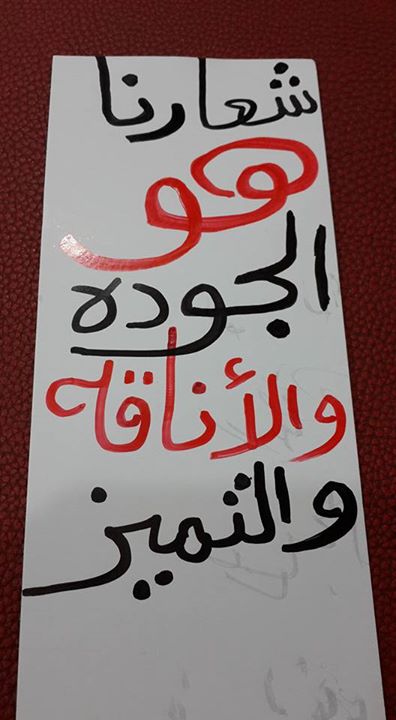 شعارنا
هو
الجوده
والأناقه
والتميز